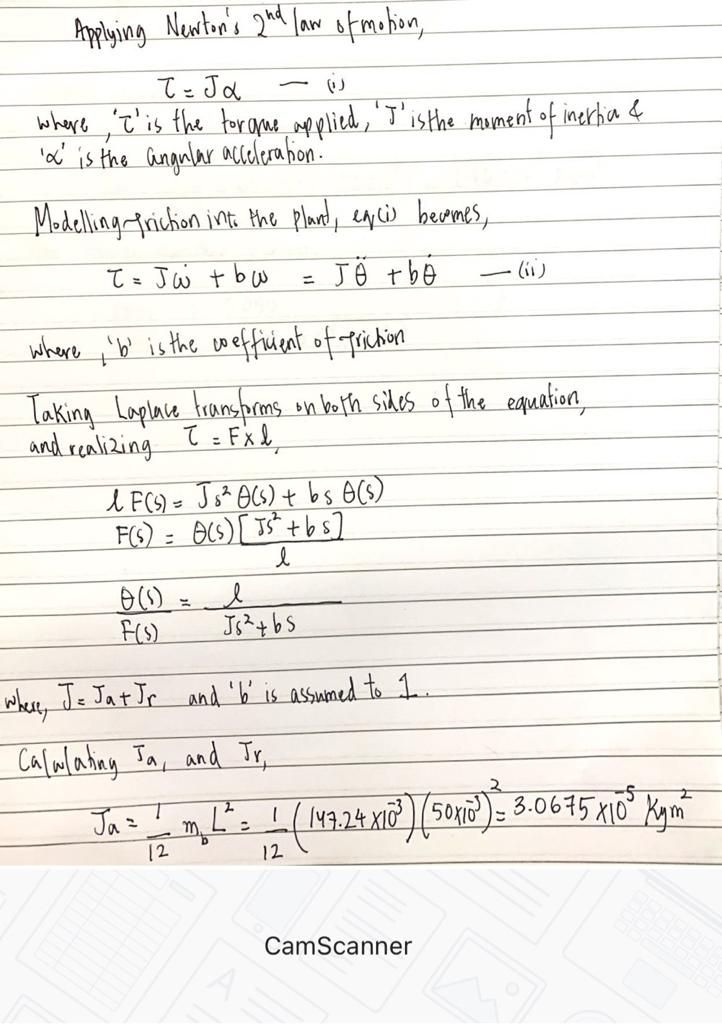 Applying Newton's 2nd law of motion,
τ = Jα — (i)
where, 'τ' is the torque applied, 'J' is the moment of inertia &
'α' is the angular acceleration.
Modelling friction into the plant, eq(i) becomes,
τ = Jω̇ + bω = Jθ̈ + bθ̇ — (ii)
where, 'b' is the coefficient of friction
Taking Laplace transforms on both sides of the equation,
and realizing τ = F×l,
l F(s) = Js² θ(s) + bs θ(s)
F(s) = θ(s) [Js² + bs]
l
θ(s) = l
F(s) Js² + bs
where, J = Ja + Jr and 'b' is assumed to 1.
Calculating Ja, and Jr,
Ja = 1/12 m_b L² = 1/12 (147.24 × 10⁻³) (50×10⁻³)² = 3.0675 × 10⁻⁵ Kgm²
CamScanner